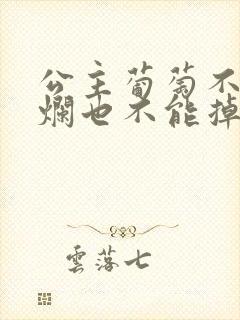 公主葡萄不
爛也不能掉
雲落七